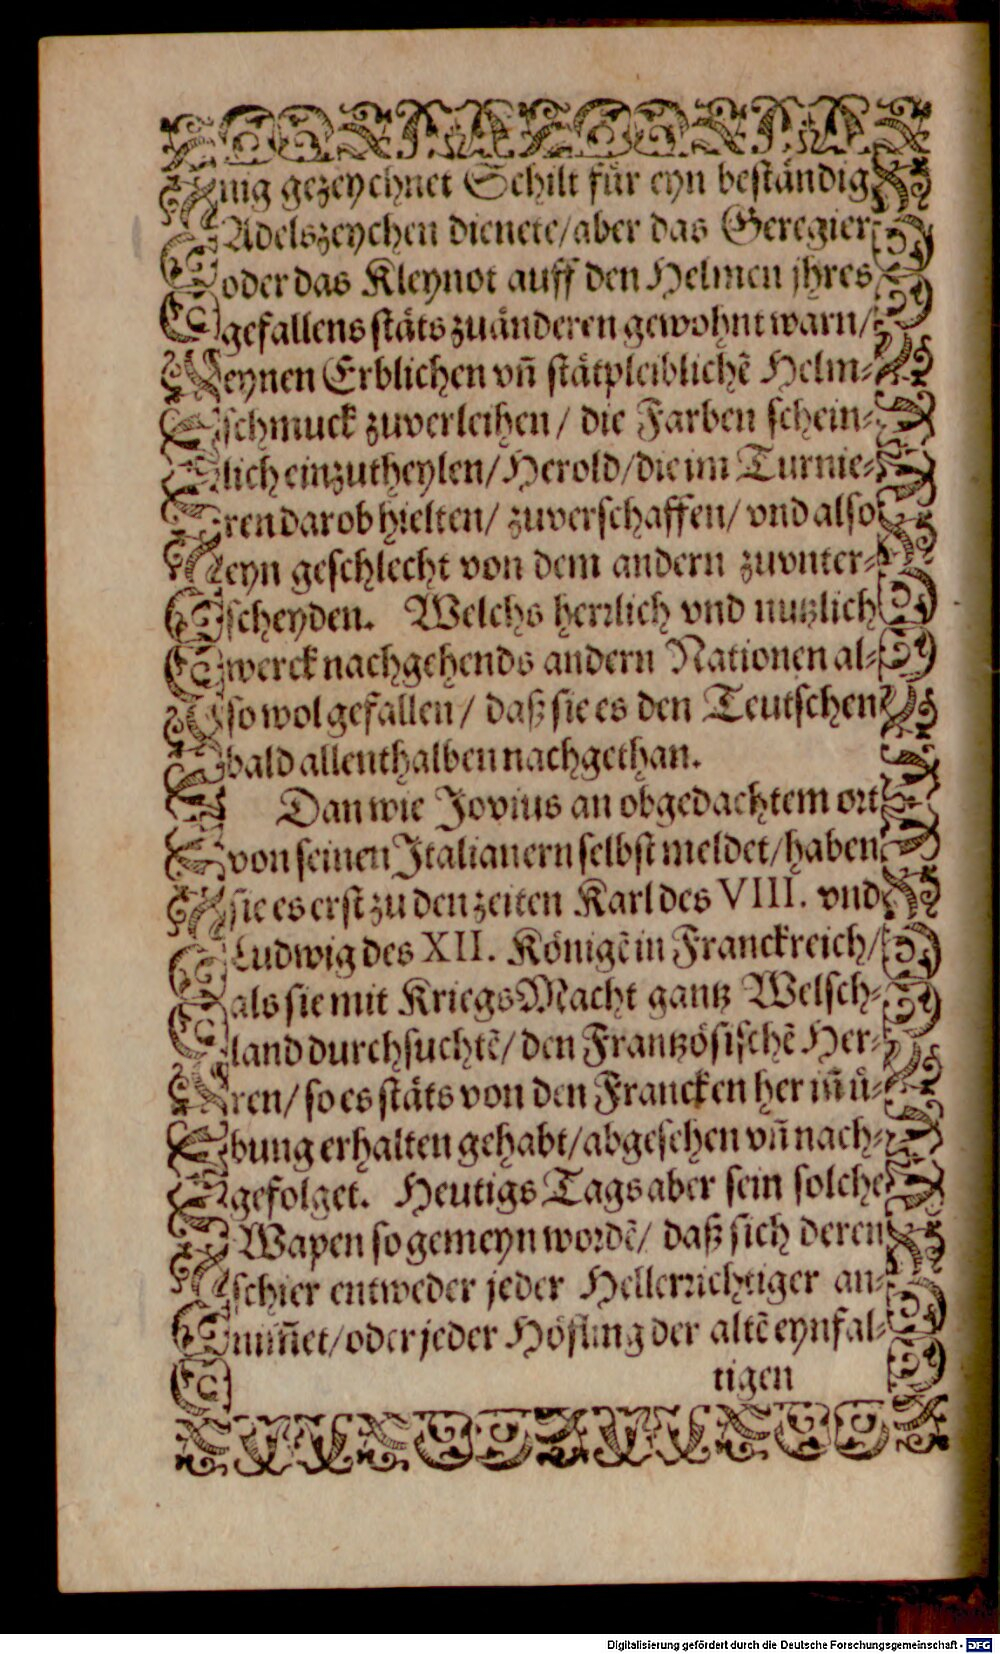 nig gezeychnet Schilt für eyn beständig
Adelszeychen dienete/aber das Geregier
oder das Kleynot auff den Helmen jhres
gefallens stäts zuänderen gewohnt warn/
eynen Erblichen vñ stätpleiblichẽ Helm⸗
schmuck zuverleihen/ die Farben schein⸗
lich einzutheylen/Herold/die im Turnie⸗
ren darob hielten/ zuverschaffen/ vnd also
eyn geschlecht von dem andern zuvnter⸗
scheyden. Welchs herrlich vnd nutzlich
werck nachgehends andern Nationen al⸗
so wol gefallen/ daß sie es den Teutschen
bald allenthalben nachgethan.
Dan wie Jovius an obgedachtem ort
von seinen Italianern selbst meldet/haben
sie es erst zu den zeiten Karl des VIII. vnd
Ludwig des XII. Königẽ in Franckreich/
als sie mit KriegsMacht gantz Welsch⸗
land durchsuchtẽ/den Frantzösischẽ Her⸗
ren/so es stäts von den Francken her iñ ü⸗
bung erhalten gehabt/abgesehen vñ nach⸗
gefolget. Heutigs Tags aber sein solche
Wapen so gemeyn wordẽ/ daß sich deren
schier entweder jeder Hellerrichtiger an⸗
nim̃et/oder jeder Höfling der altẽ eynfal⸗
tigen
Digitalisierung gefördert durch die Deutsche Forschungsgemeinschaft - DFG